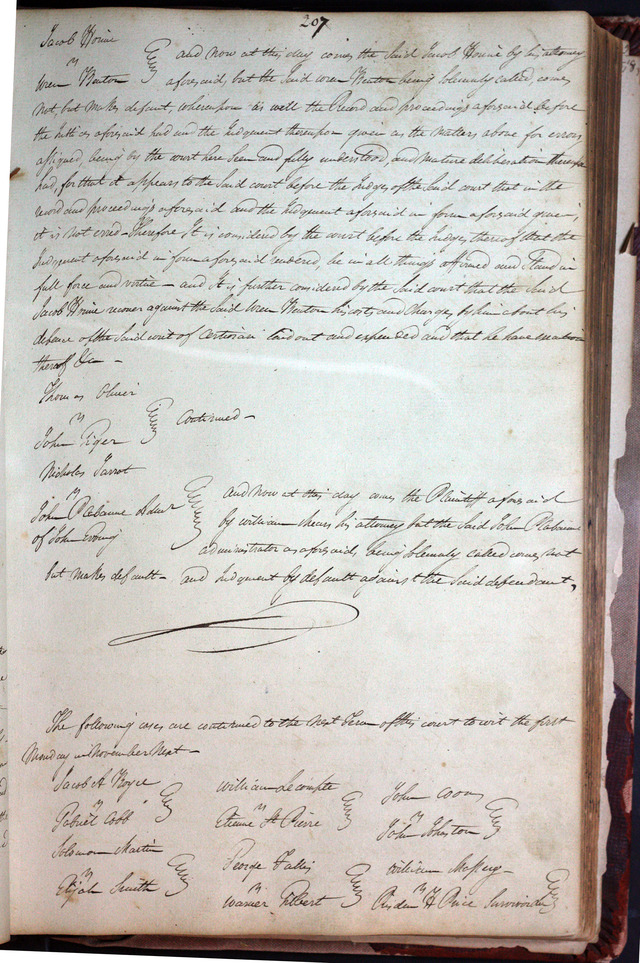 207
Jacob Horine
vs
Wren Newton
and now at this day comes the Said Jacob Horine by his attorney
aforesaid, but the Said Wren Newton being Solemnly called, comes
not but makes default, whereupon as well the Record and proceedings aforesaid before
the Justices aforesaid had and the Judgment thereupon given as the matters above for errors
assigned, being by the court here Seen and fully understood, and mature deliberation thereupon
had, for that it appears to the Said court before the Judges of the Said court that in the
record and proceedings aforesaid and the Judgement aforesaid in form aforesaid given,
it is not erred - Therefore, It is considered by the court before the Judges thereof that the
Judgment aforesaid in form aforesaid rendered, be in all things affirmed and Stand in
full force and virtue - and it is further considered by the Said court that the Said
Jacob Horine recover against the Said Wren Newton his costs and charges by him about his
defence of the Said writ of Certiorari laid out and expended and that he have
thereof &c -
Thomas Oliver
vs
John Tiger
continued -
Nicholas Jarrot
vs
John Rabaune Admr
of John Young
and now at this day comes the Plaintiff aforesaid
by William Mears his attorney but the Said John Rabaune
administrator as aforesaid, being Solemnly called comes not
but makes default - and Judgment by default against the Said defendant,
The following cases are continued to the next Term of this court to wit the first
Monday in November next -
Jacob A Boyce
vs
Gabriel Cobb
William Lecompte
vs
Etienne St Pierre
John Coons
vs
John Johnston
Solomon Martin
vs
Elijah Smith
George Fallis
vs
Warner Gilbert
William Massey
vs
Risdon H Price Surviving